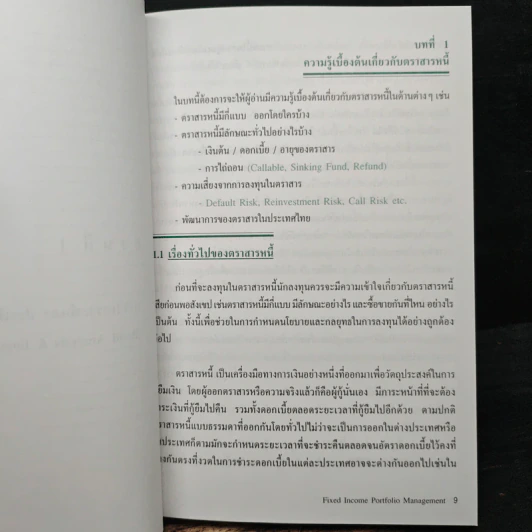 บทที่ 1
ความรู้เบื้องต้นเกี่ยวกับตราสารหนี้
ในบทนี้ต้องการจะให้ผู้อ่านมีความรู้เบื้องต้นเกี่ยวกับตราสารหนี้ในด้านต่างๆ เช่น
- ตราสารหนี้มีกี่แบบ ออกโดยใครบ้าง
- ตราสารหนี้มีลักษณะทั่วไปอย่างไรบ้าง
- เงินต้น / ดอกเบี้ย / อายุของตราสาร
- การไถ่ถอน (Callable, Sinking Fund, Refund)
- ความเสี่ยงจากการลงทุนในตราสาร
- Default Risk, Reinvestment Risk, Call Risk etc.
- พัฒนาการของตราสารในประเทศไทย
1.1 เรื่องทั่วไปของตราสารหนี้
ก่อนที่จะลงทุนในตราสารหนี้นักลงทุนควรจะมีความเข้าใจเกี่ยวกับตราสารหนี้
สียก่อนพอสังเขป เช่นตราสารหนี้มีกี่แบบ มีลักษณะอย่างไร และซื้อขายกันที่ไหน อย่างไร
ป็นต้น ทั้งนี้เพื่อช่วยในการกำหนดนโยบายและกลยุทธในการลงทุนได้อย่างถูกต้อง
่อไป
ตราสารหนี้ เป็นเครื่องมือทางการเงินอย่างหนึ่งที่ออกมาเพื่อวัตถุประสงค์ในการ
ู้ยืมเงิน โดยผู้ออกตราสารหรือความจริงแล้วก็คือผู้กู้นั่นเอง มีภาระหน้าที่ที่จะต้อง
ำระเงินที่กู้ยืมไปคืน รวมทั้งดอกเบี้ยตลอดระยะเวลาที่กู้ยืมไปอีกด้วย ตามปกติ
ราสารหนี้แบบธรรมดาที่ออกกันโดยทั่วไปไม่ว่าจะเป็นการออกในต่างประเทศหรือ
ประเทศก็ตามมักจะกำหนดระยะเวลาที่จะชำระคืนตลอดจนอัตราดอกเบี้ยไว้คงที่
างกันตรงที่งวดในการชำระดอกเบี้ยในแต่ละประเทศอาจจะต่างกันออกไปเช่นใน
Fixed Income Portfolio Management 9